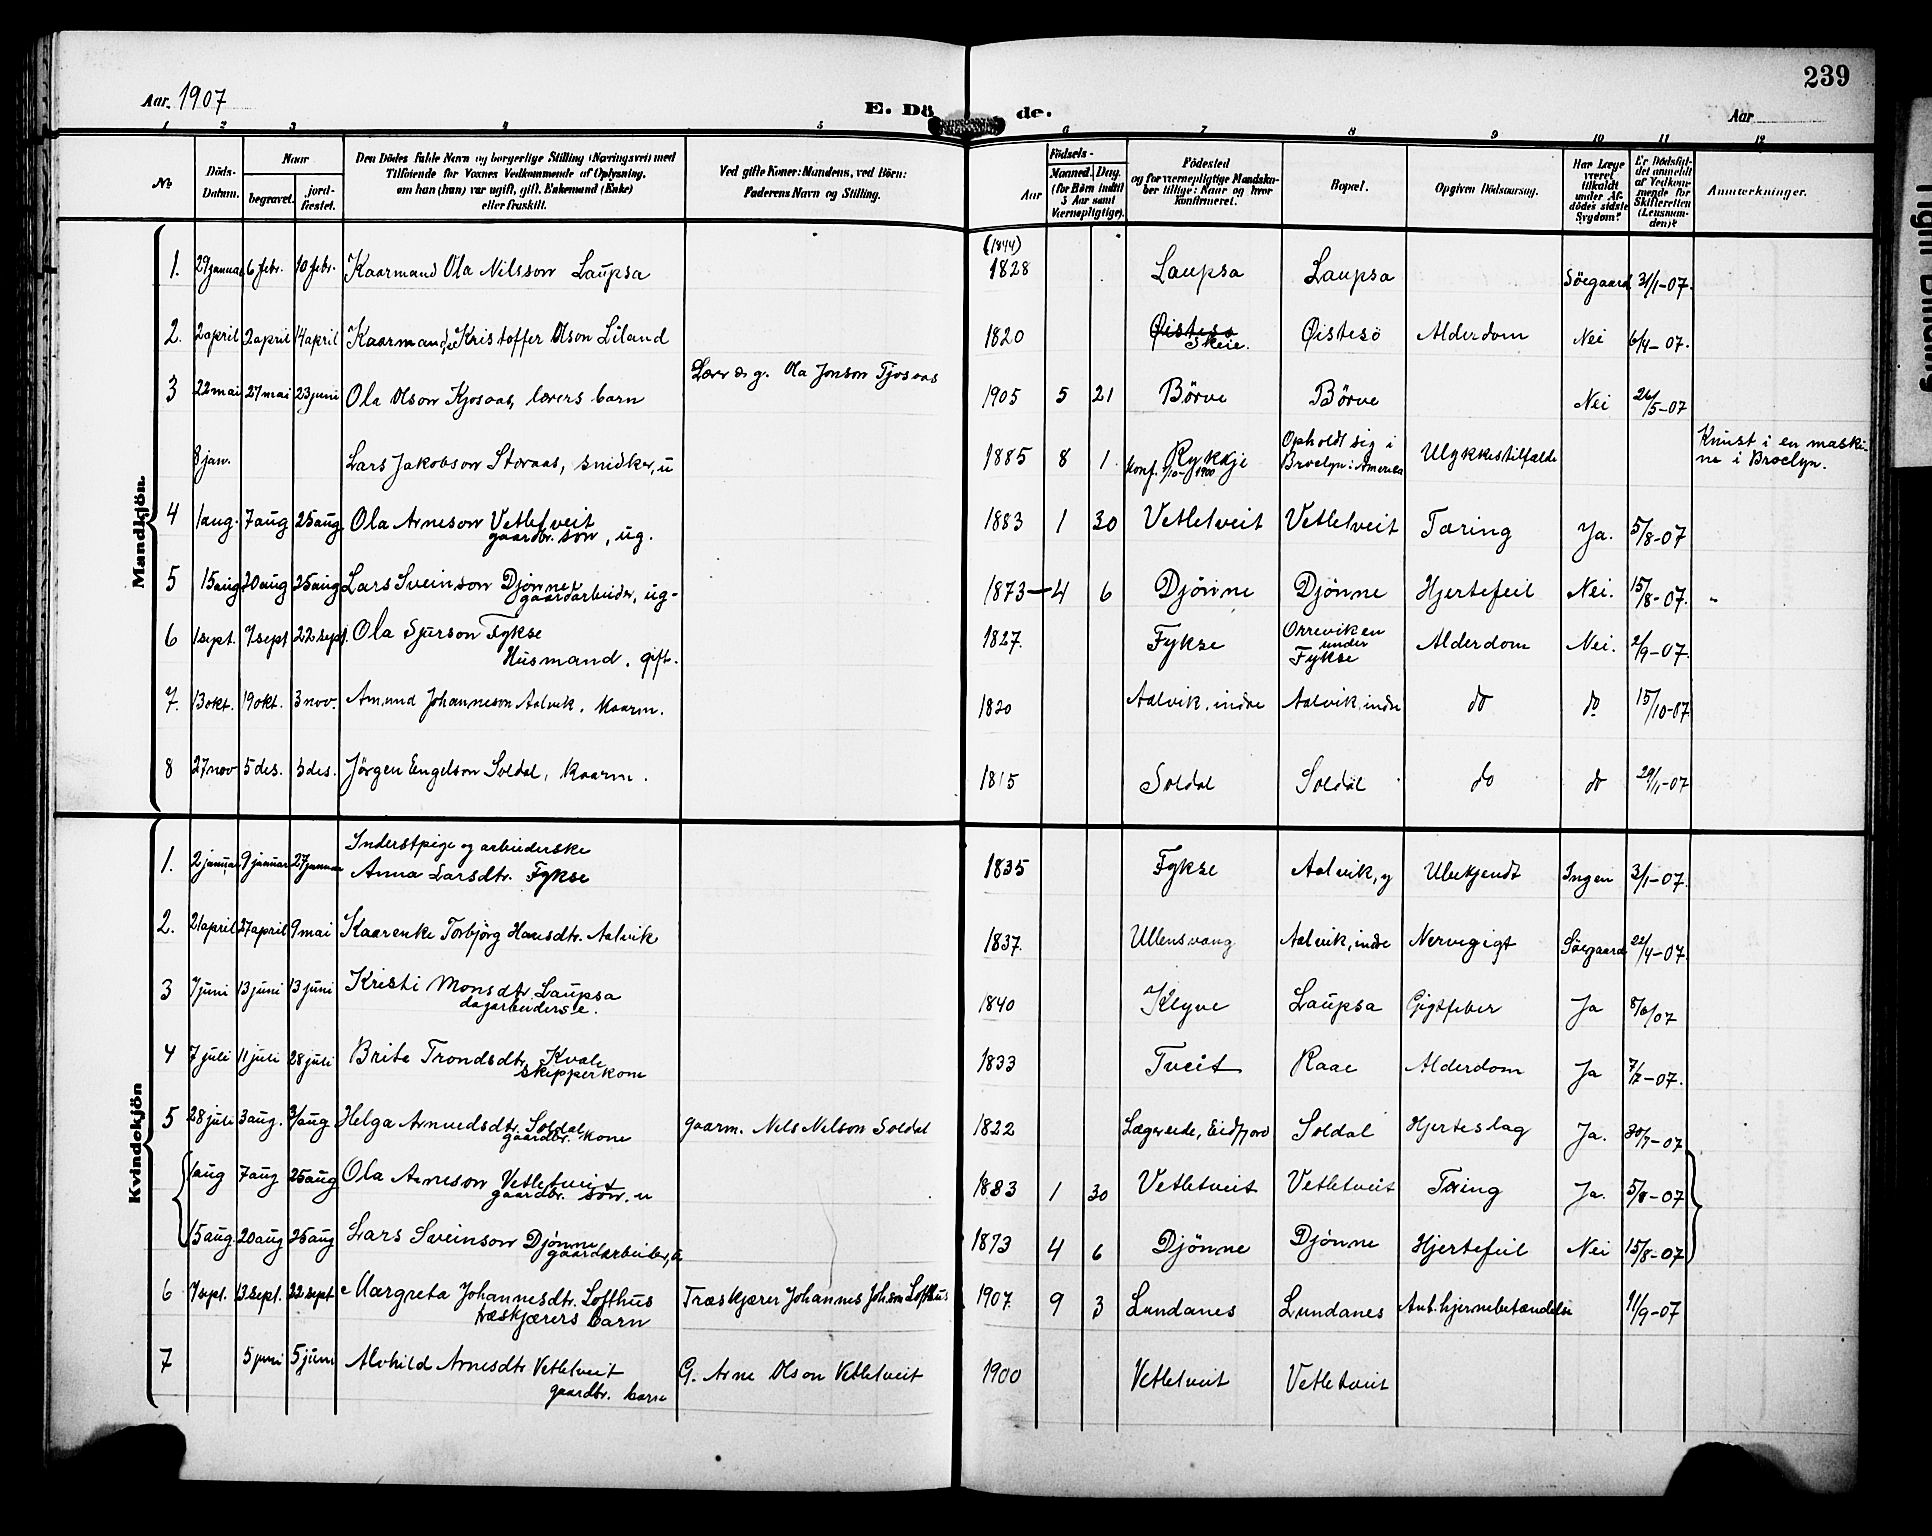 239
Aar 1907
E. Dö de.
Aar
1 2 3 4 5 6 7 8 9 10 11 12
No
Döds-Datum.
Naar
begravet.
jord-fæstet.
Den Dödes fulde Navn og borgerlige Stilling (Næringsvei) med
Tilföiende for Voxnes Vedkommende af Oplysning,
om han (hun) var ugift, gift, Enkemand (Enke)
eller fraskilt.
Ved gifte Koner: Mandens, ved Börn:
Faderens Navn og Stilling.
Födsels-
Aar
Maaned. Dag.
(for Börn indtil
5 Aar samt
Værnepligtige).
Födested
og for værnepligtige Mandskaber tillige: Naar og hvor
konfirmeret.
Bopæl.
Opgiven Dödsaarsag.
Har Læge været tilkaldt under Afdödes sidste Sygdom?
Er Dödsfaldet anmeldt af Vedkommende for Skifteretten (Lensmanden)?
Anmærkninger.
Mandkjön.
1. 29 januar 6 febr. 10 febr. Kaarmand Ola Nilsson Laupsa (1844) 1828 Laupsa Laupsa Söegaard 31/1-07.
2. 2 april 2 april 14 april Kaarmand, Kristoffer Olson Liland 1820 Øistesø Skeie. Øistesö Alderdom Nei 6/4-07.
3 22 mai 27 mai 23 juni Ola Olson Kjosaas, lærers barn Lærer og g. Ola Jonson Tjosaas 1905 5 21 Börve Börve Nei 26/5-07
8 jan. Lars Jakobson Storaas, snidker, u 1885 8 1 Rykkje konf. 1900 Opholdt sig i Broclyn i Amerika Ulykkestilfælde Knust i en maskine i Broclyn.
4 1 aug. 7 aug 25 aug Ola Arneson Vetletveit gaardbr. søn, ug. 1883 1 30 Vetletveit Vetletveit Tæring Ja. 5/8-07
5 15 aug 20 aug 25 aug Lars Sveinson Djønne gaardarbeider, ug- 1873 - 4 6 Djönne Djönne Hjertefeil Nei. 15/8-07.
6 1 sept. 7 sept 22 sept. Ola Sjurson Fykse Husmand, gift. 1827. Fykse Orreviken under Fykse Alderdom Nei. 2/9-07.
7. 13 okt. 19 okt. 3 nov. Amund Johanneson Aalvik, Kaarm. 1820 Aalvik, indre Aalvik, indre do do 15/10-07
8 27 nov 5 des. 5 des. Jörgen Engelson Soldal, kaarm. 1815 Soldal Soldal do do 29/11-07
Kvindekjön
1. 2 januar 9 januar 27 januar Inderstpige og arbeiderske Anna Larsdtr. Fykse 1835 Fykse Aalvik, y Ubekjendt Ingen 3/1-07.
2. 21 april 27 april 9 mai Kaarenke Torbjörg Hansdtr. Aalvik 1837. Ullensvang Aalvik, indre Nervegigt Söegaard 22/4-07.
3 7 juni 13 juni 13 juni Kristi Monsdtr. Laupsa dagarbeiderske. 1840 Klyve Laupsa Gigtfeber Ja 8/6/07
4 7 juli 11 juli 28 juli Brita Trondsdtr. Kvale skipperkone 1833 Tveit Raae Alderdom Ja 7/7-07.
5 28 juli 3 aug. 3/aug Helga Arnvedsdtr. Soldal gaardbr. kone gaarm. Nels Nelson Soldal 1822 Lægreide, Eidfjord Soldal Hjerteslag Ja. 30/7-07
1 aug 7 aug 25 aug Ola Arneson Vetletveit gaardbr. søn, u 1883 1 30 Vetletveit Vetletveit Tæring Ja. 5/8-07
15 aug. 20 aug 25 aug Lars Sveinson Djönne gaardarbeider, u 1873 4 6 Djönne Djönne Hjertefeil Nei 15/8-07
6 7 sept. 13 sept. 22 sept Margreta Johannesdtr. Lofthus træskjærers barn Træskjærer Johannes Johsen Lofthus 1907. 9 3 Lundanes Lundanes Ant. hjernebetændelse 11/9-07
7 5 juni 5 juni Alvhild Arnesdtr Vetletveit gaardbr. barn G. Arne Olson Vetletveit 1900 Vetletveit Vetletveit